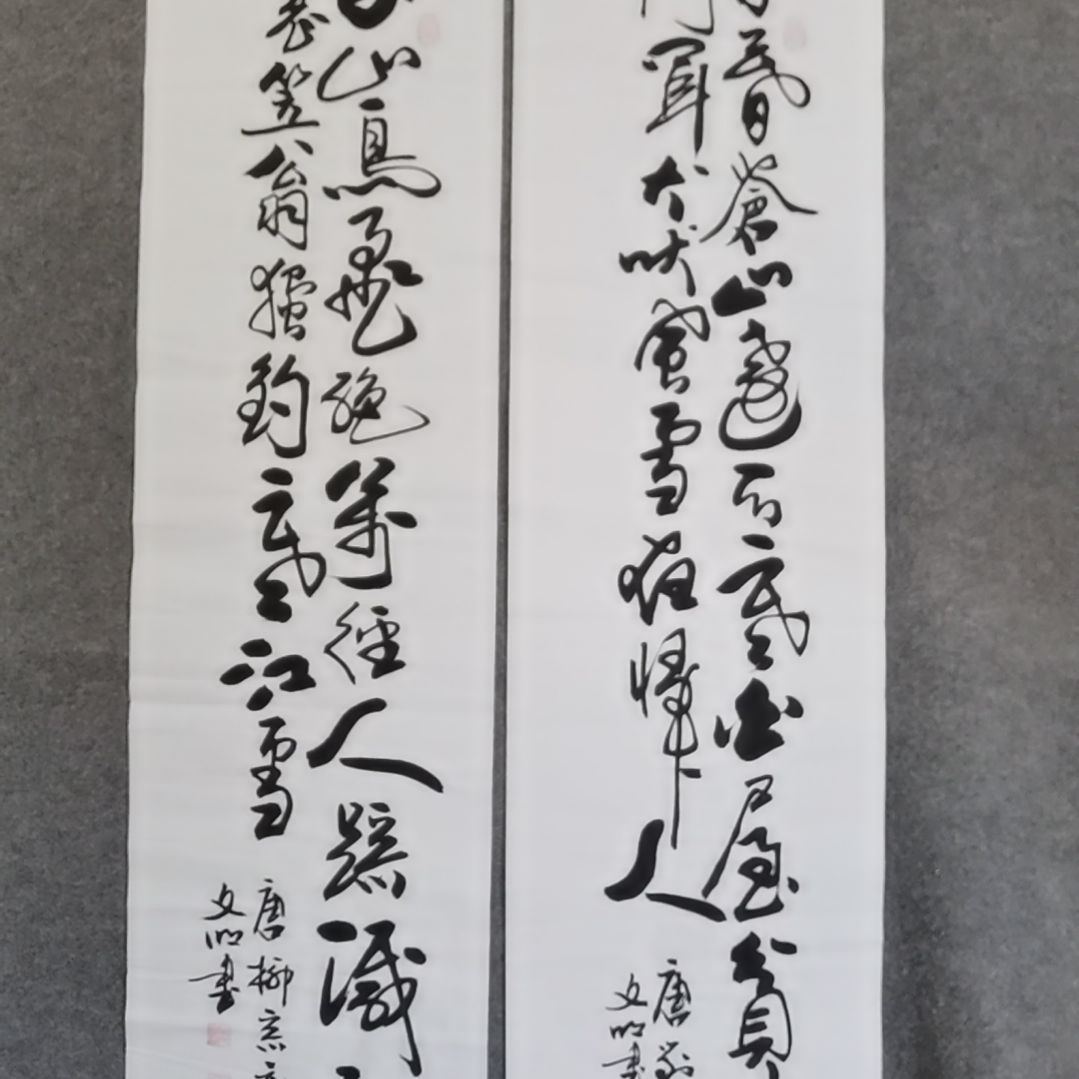 暮蒼山遠天寒白屋貧
聞犬吠風雪夜歸人
唐劉
文明書
山鳥飛絕萬徑人蹤滅
蓑笠翁獨釣寒江雪
唐柳宗元
文明書